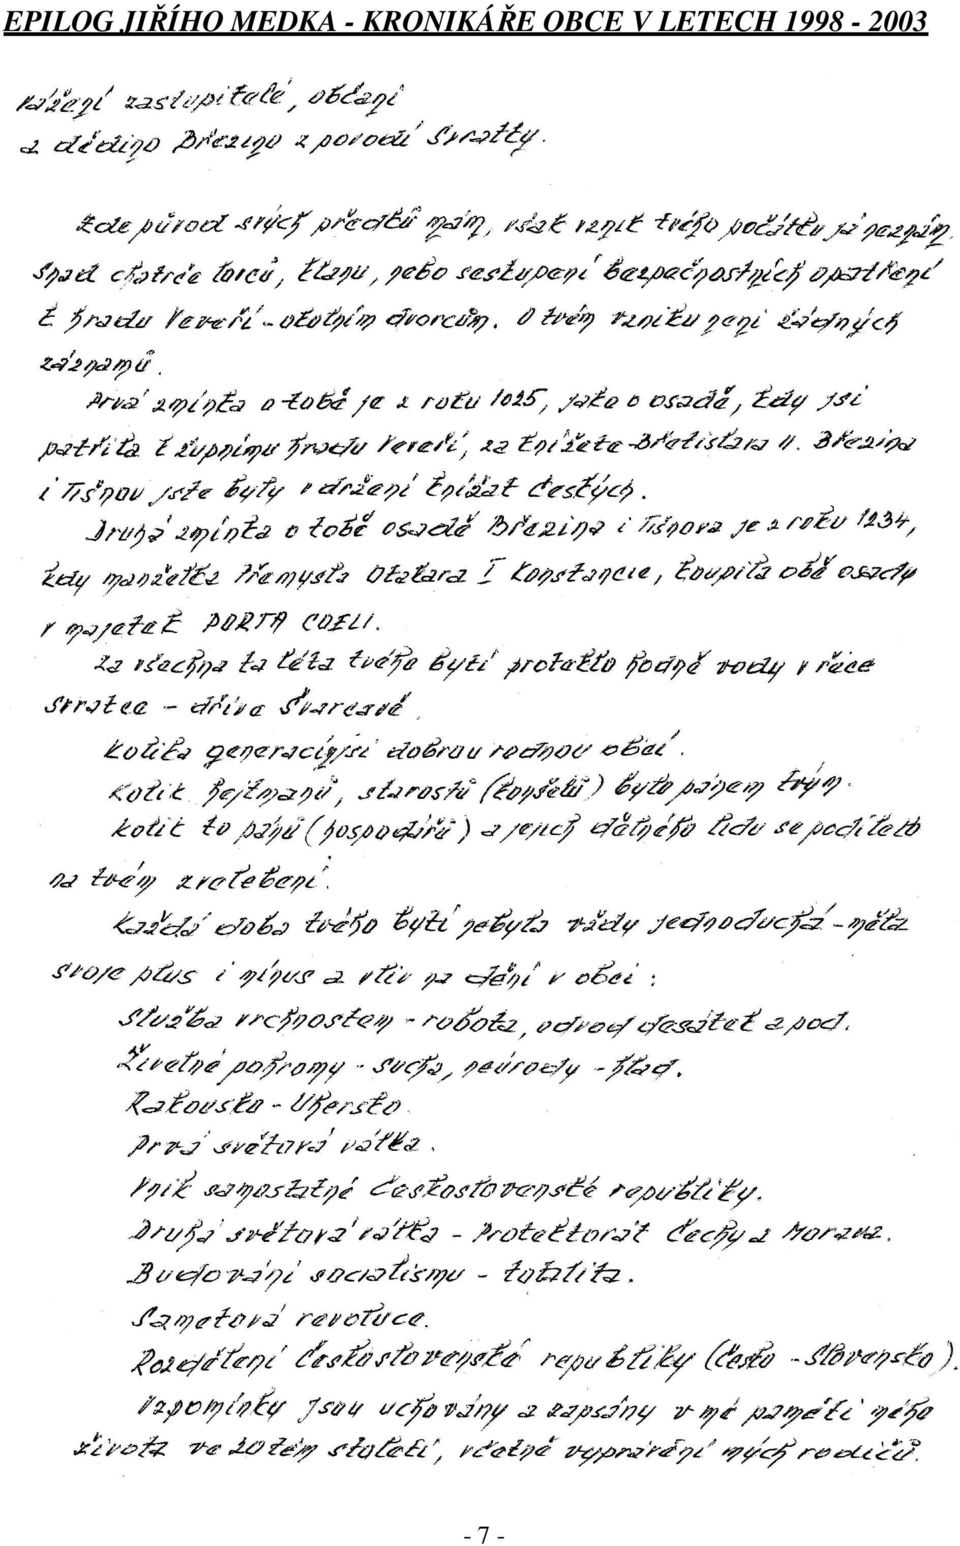 EPILOG JIŘÍHO MEDKA - KRONIKÁŘE OBCE V LETECH 1998 - 2003
Vážení zastupitelé, občani
a dědino Březino z povodí Svratky.
Zde původ svých předků mám, však vznik tvého počátku já neznám.
Snad chatrče lovců, klanu, nebo seskupení bezpečnostních opatření
k hradu Veveří - okolním dvorcům. O tvém vzniku není žádných
záznamů.
Prvá zmínka o tobě je z roku 1025, jako o osadě, kdy jsi
patřila k župnímu hradu Veveří, za knížete Břetislava II. Březina
i Tišnov jste byly v držení knížat českých.
Druhá zmínka o tobě osadě Březina i Tišnova je z roku 1234,
kdy manželka Přemysla Otakara I Konstancie, koupila obě osady
v majetek PORTA COELI.
Za všechna ta léta tvého bytí proteklo hodně vody v řece
Svratce - dříve Švarcavě.
Kolika generacím jsi dobrou rodnou obcí.
Kolik hejtmanů, starostů (konšelů) bylo pánem tvým.
kolik to pánů (hospodářů) a jejich dělného lidu se podílelo
na tvém zvelebení.
Každá doba tvého bytí nebyla vždy jednoduchá - měla
svoje plus i mínus a vliv na dění v obci :
Služba vrchnostem - robota, odvod desátek a pod.
Živelné pohromy - sucha, neúrody - hlad.
Rakousko - Uhersko.
Prvá světová válka.
Vnik samostatné Československé republiky.
Druhá světová válka - Protektorát Čechy a Morava.
Budování socialismu - totalita.
Sametová revoluce.
Rozdělení Československé republiky (Česko - Slovensko).
Vzpomínky jsou uchovány a zapsány v mé paměti mého
života ve 20tém století, včetně vyprávění mých rodičů.
- 7 -